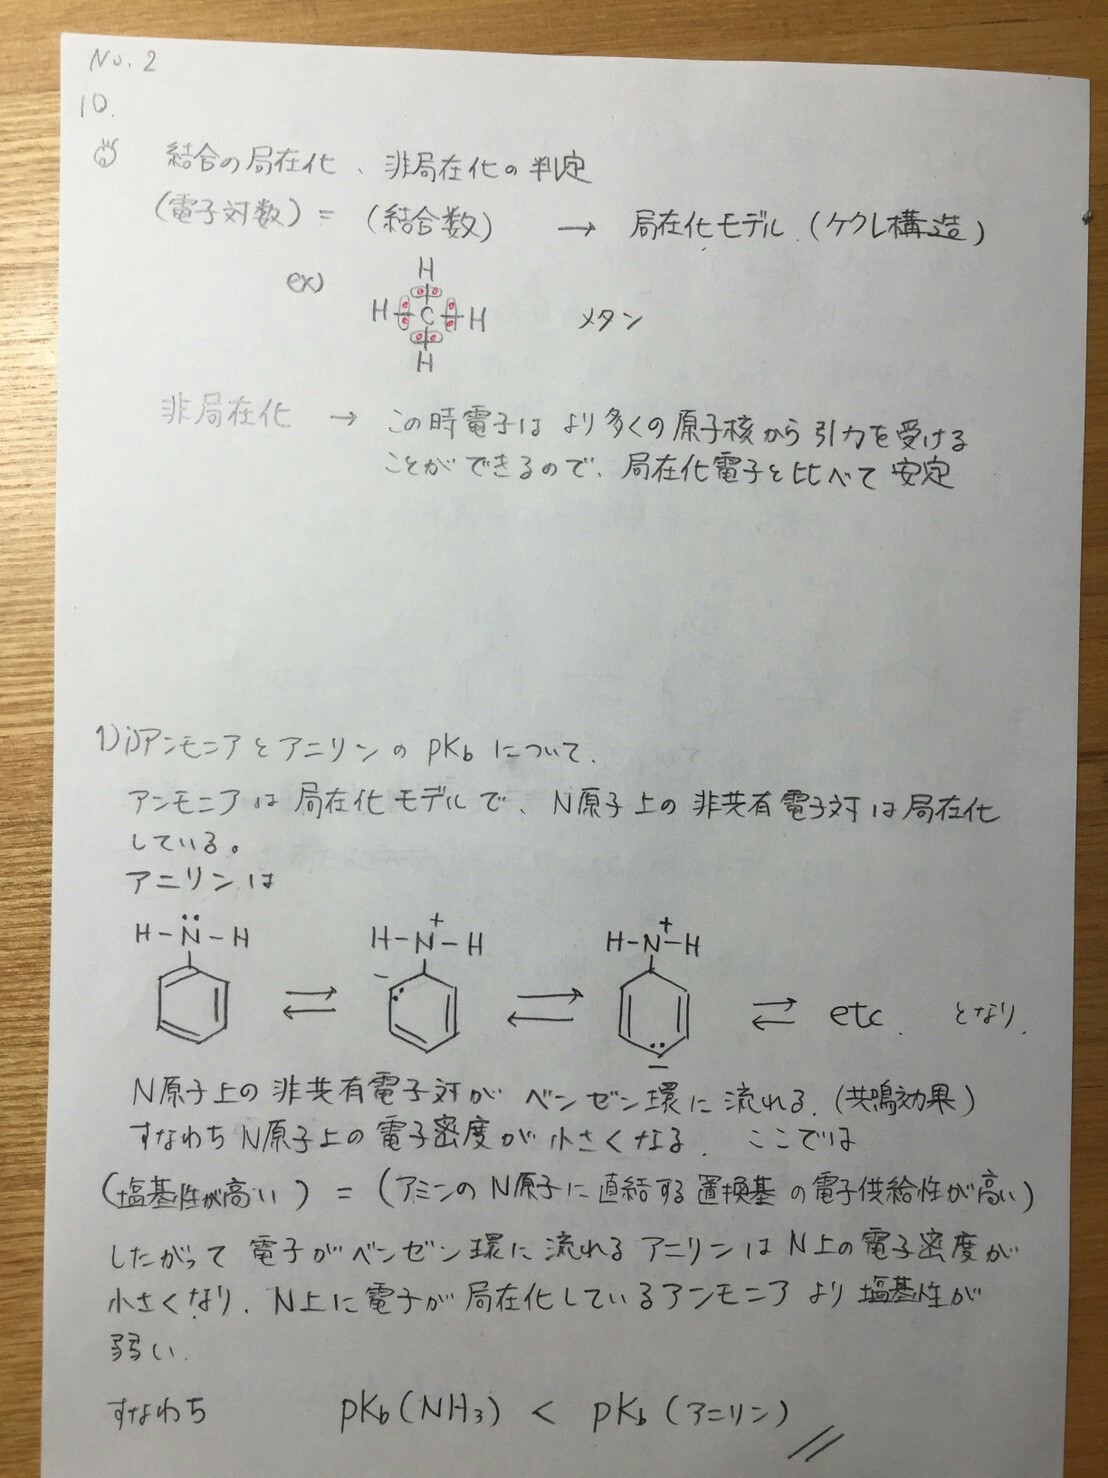 No. 2
10.
結合の局在化、非局在化の判定
(電子対数) = (結合数) → 局在化モデル (ケクレ構造)
ex)
H
H C H
メタン
H
非局在化 → この時電子は より多くの原子核から引力を受ける
ことができるので、局在化電子と比べて安定
1) i) アンモニアとアニリンの pKb について.
アンモニアは局在化モデルで、N原子上の非共有電子対は局在化
している。
アニリンは
H-N̈-H ⇌ H-N⁺-H ⇌ H-N⁺-H ⇌ etc. となり.
N原子上の非共有電子対が ベンゼン環に流れる. (共鳴効果)
すなわちN原子上の電子密度が小さくなる. ここでは
(塩基性が高い) = (アミンのN原子に直結する置換基の電子供給性が高い)
したがって電子がベンゼン環に流れるアニリンはN上の電子密度が
小さくなり. N上に電子が局在化しているアンモニアより塩基性が
弱い.
すなわち pKb (NH₃) < pKb (アニリン) //